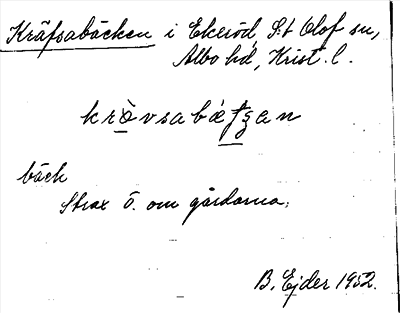 Kräfsabäcken i Ekeröd, S:t Olof sn,
Albo hd, Krist. l.
bäck
Strax ö. om gårdarna.
B. Ejder 1952.